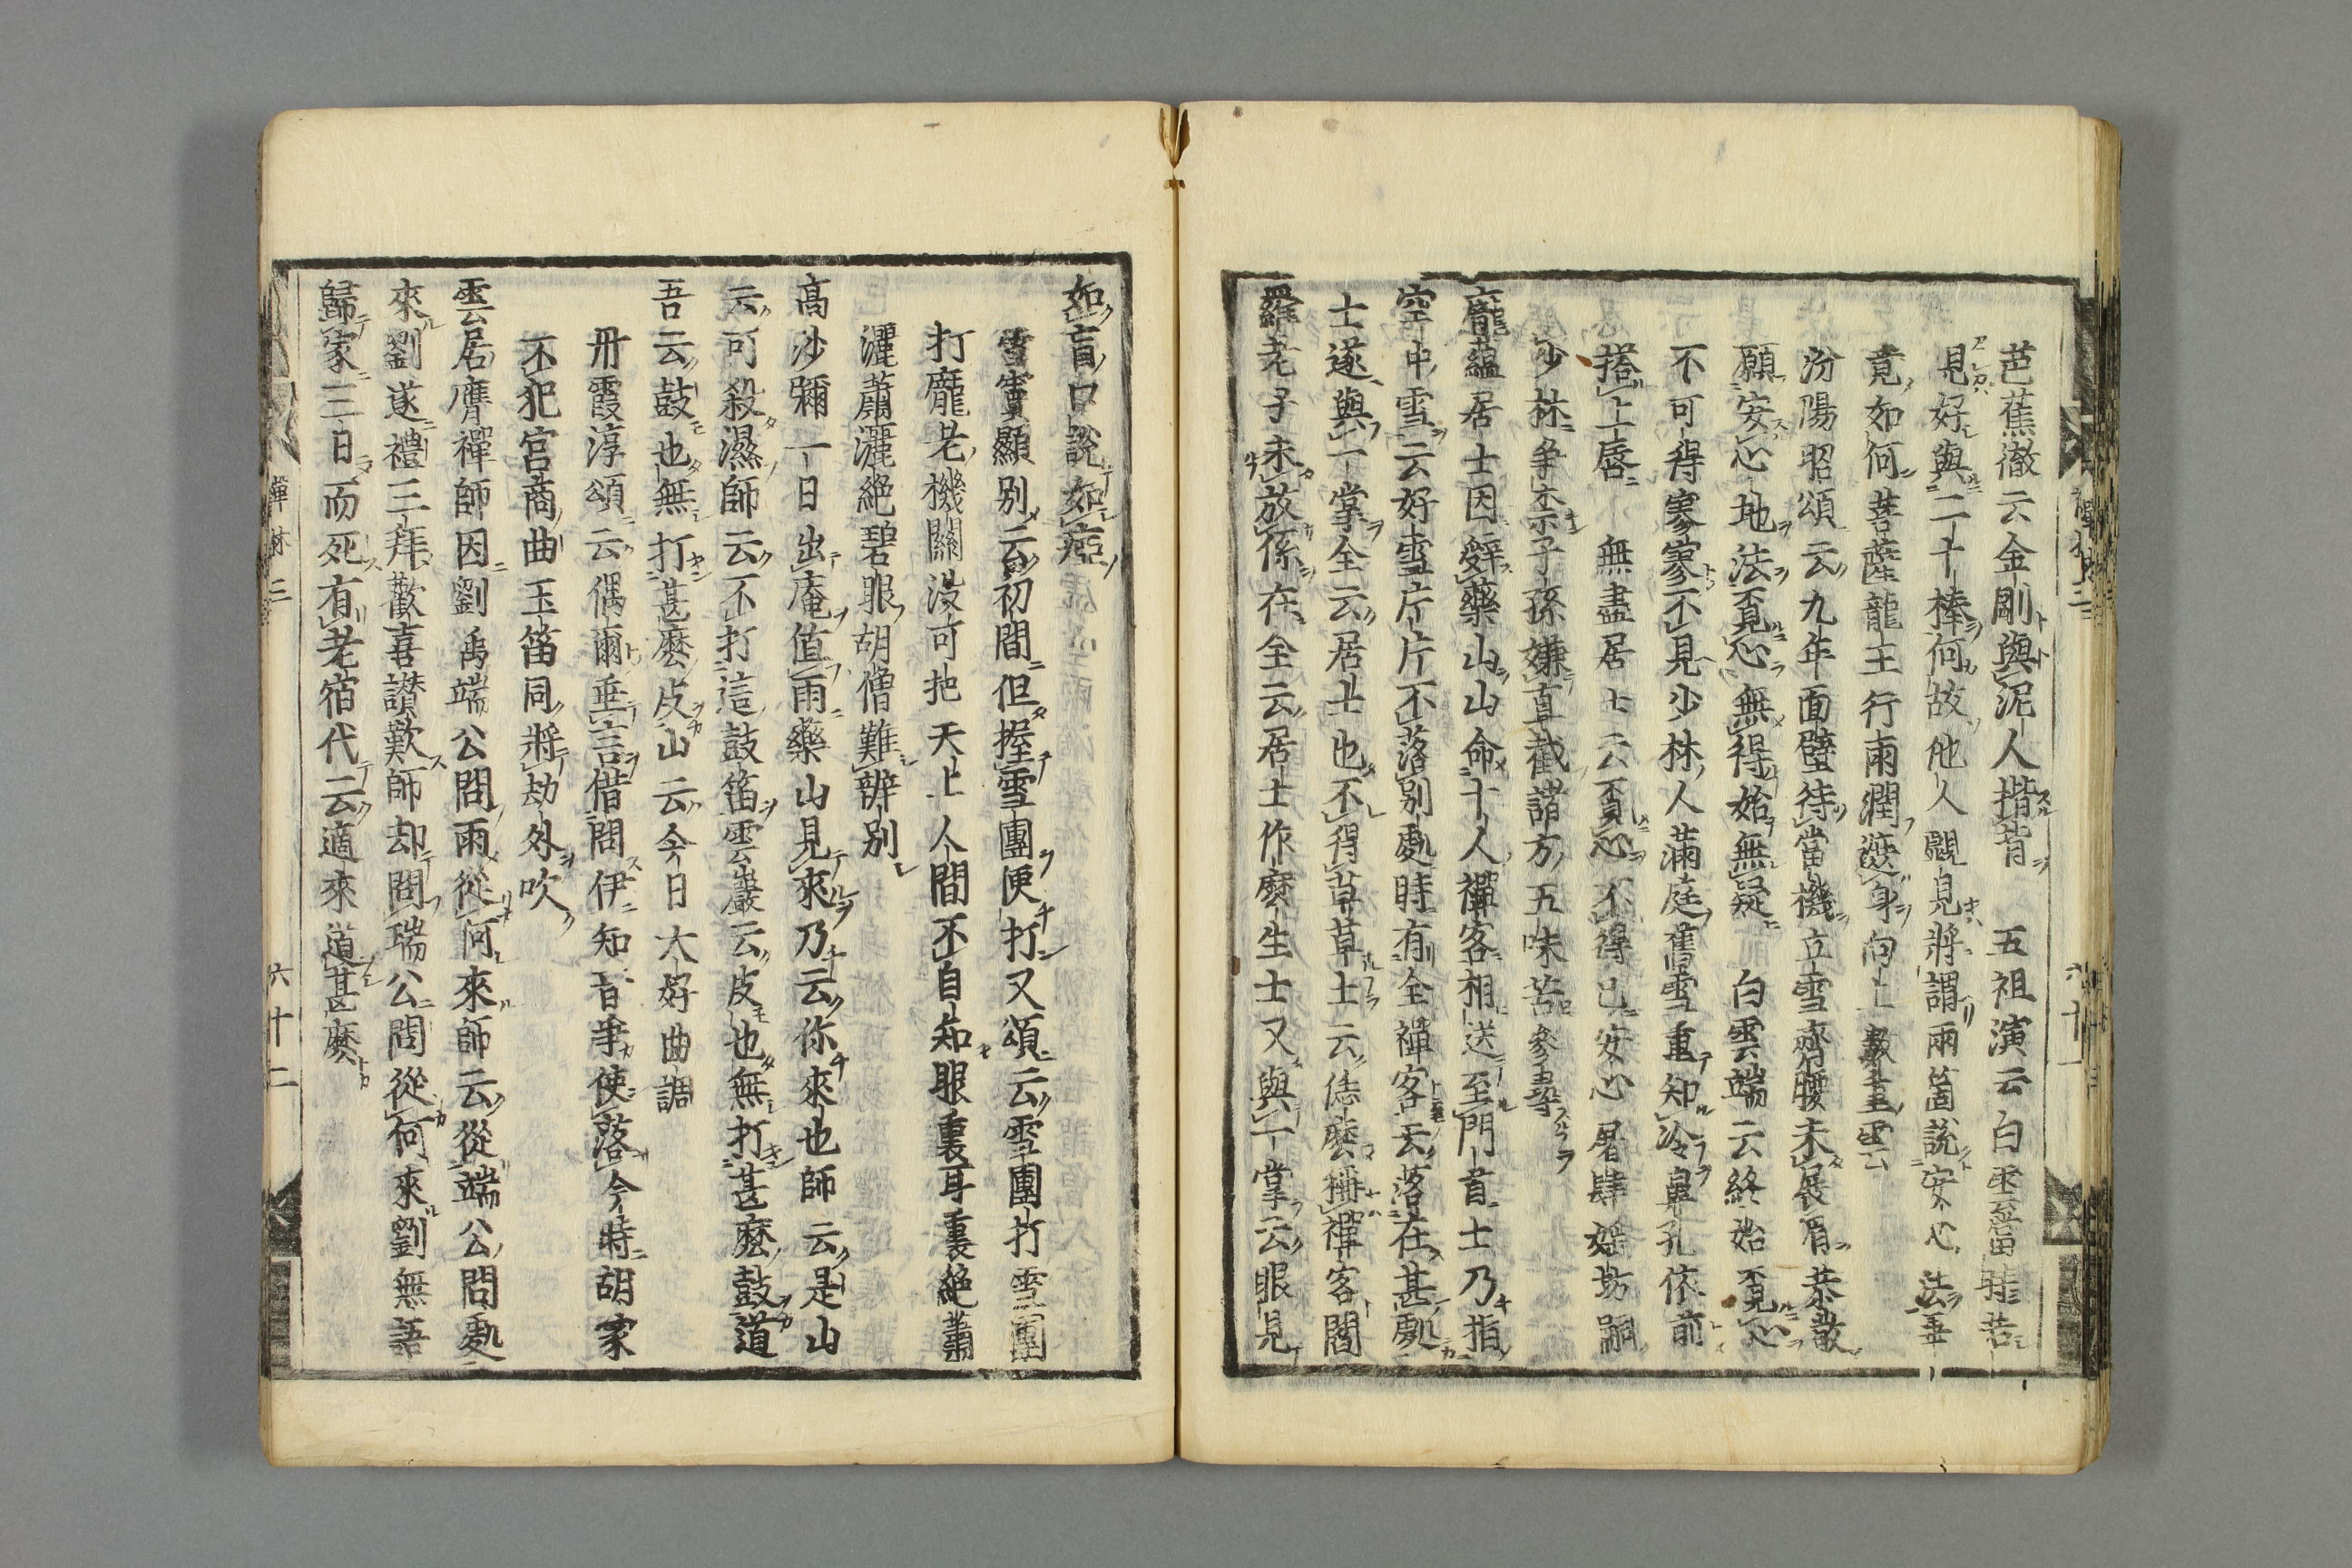 芭蕉徹云金剛與泥人揩背　五祖演云白
見好與二十棒何故他人覷見將謂兩箇說安心法
竟如何菩薩龍王行雨潤遮身向上數重雲
汾陽昭頌云九年面壁待當機立雪齊腰未展眉恭敬
願安心地法覓心無得始無疑　白雲端云終始覓心
不可得寥寥不見少林人滿庭舊雪重知冷鼻孔依前
搭上唇　無盡居士云覓心不得已安心屠肆婬坊
少林爭柰子孫嫌直截諸方五味苦參尋
龐蘊居士因辭藥山山命十人禪客相送至門首士乃指
空中雪云好雪片片不落別處時有全禪客云落在甚處
士遂與一掌全云居士也不得草草士云恁麼稱禪客閻
羅老子未放係在全云居士作麼生士又與一掌云眼見
如盲口說如瘂
雪竇顯別云初問但握雪團便打又頌云雪團打雪團
打龐老機關沒可把天上人間不自知眼裏耳裏絕蕭
灑蕭灑絕碧眼胡僧難辨別
高沙彌一日出庵值雨藥山見來乃云你來也師云是山
云可殺濕師云不打這鼓笛雲巖云皮也無打甚麼鼓道
吾云鼓也無打甚麼皮山云今日大好曲調
丹霞淳頌云偶爾垂言借問伊知音爭使落今時胡家
不犯宮商曲玉笛同將劫外吹
雲居膺禪師因劉禹端公問雨從何來師云從端公問處
來劉遂禮三拜歡喜讚歎師却問瑞公問從何來劉無語
歸家三日而死有老宿代云適來道甚麼
禪林三　六十二